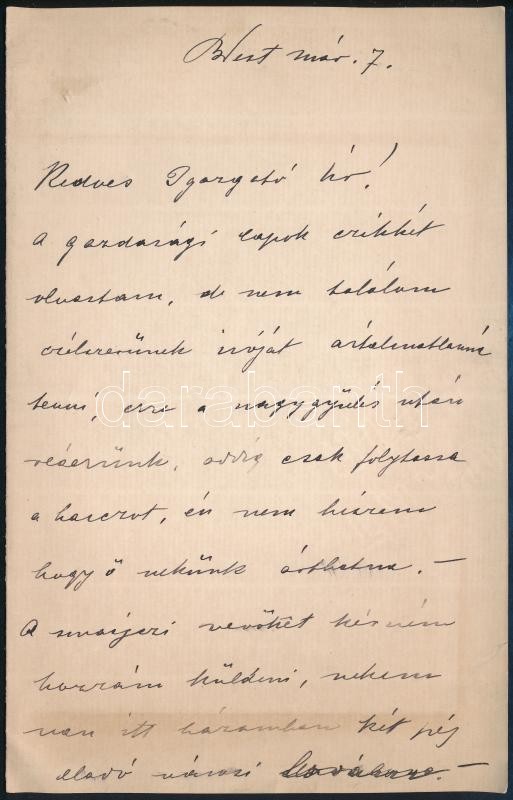 Bpest már. 7.
Kedves Igazgató úr!
A gazdasági lapok czikkét
olvastam, de nem találom
czélszerűnek iróját ártalmatlanná
tenni, erre a nagygyűlés után
ráérünk, addig csak folytassa
a harczot, én nem hiszem
hogy ő nekünk árthatna. —
A svájczi vevőket kérném
hozzám küldeni, nekem
van itt házamban két
eladó városi
darabanth